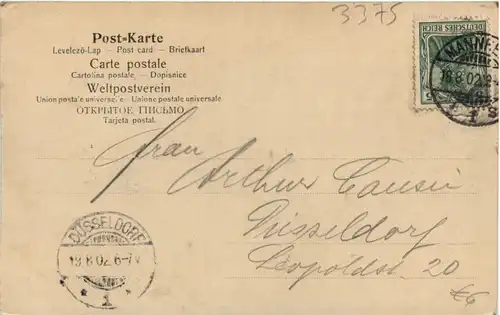 3375
Post=Karte
Levelező-Lap — Post card — Briefkaart
Carte postale
Cartolina postale — Dopisnice
Weltpostverein
Union postale universelle — Unione postale universale
ОТКРЫТОЕ ПИСЬМО
Tarjeta postal.
DEUTSCHES REICH
5
18.8.02
1
Frau
Arthur
Düsseldorf
Leopoldst. 20
DÜSSELDORF
19.8.02.6-7V
* 1 *
€6